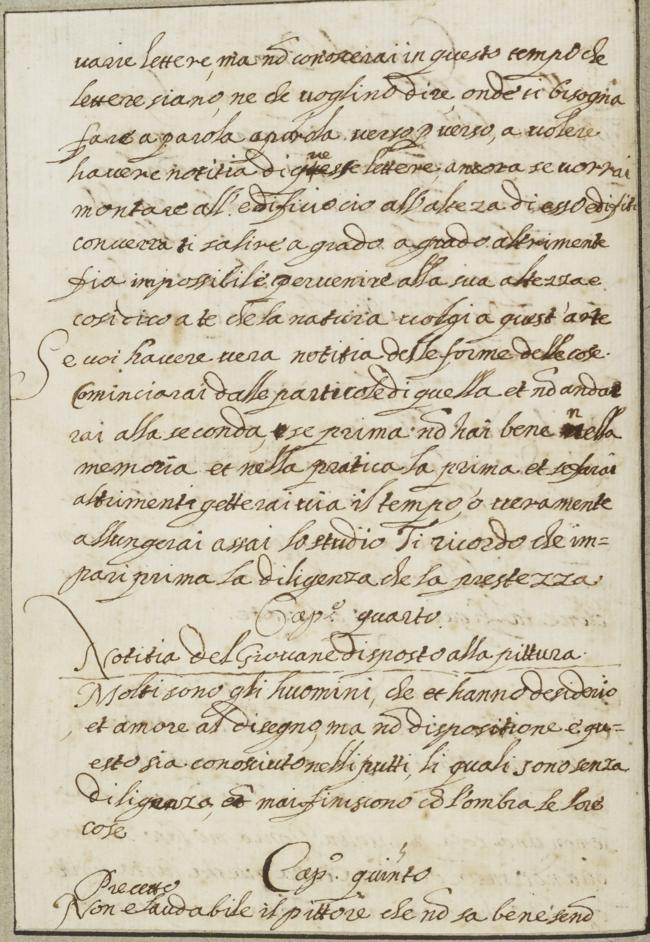 varie lettere, ma nõ conoscerai in questo tempo che
lettere siano, ne che voglino dire onde ti bisogna
fare a parola a parola verso p verso, a volere
havere notitia di lettere ancora se vorrai
montare all' edificio cio all' alteza di esso edifitio
converra ti salire a grado a grado altrimente
fia impossibile pervenire alla sua altezza e
cosi dico a te che la natura volgi a quest' arte
Se voi havere vera notitia delle forme delle cose
Cominciarai dalle particole di quella et nõ andar
rai alla seconda, se prima nõ hai bene nella
memoria et nella pratica la prima et se farai
altrimenti getterai via il tempo, o veramente
allungerai assai lo studio Ti ricordo che im=
pari prima la diligenza che la prestezza
Cap.º quarto
Notitia del Giovane disposto alla pittura
Molti sono gli huomini, che et hanno desiderio
et amore al disegno, ma nõ dispositione e qu=
esto sia conosciuto nelli putti, li quali sono senza
diligenza, et mai finiscono cõ l'ombra le lore
cose
Cap.º quinto
Precetto
Non e laudabile il pittore che nõ sa bene senõ